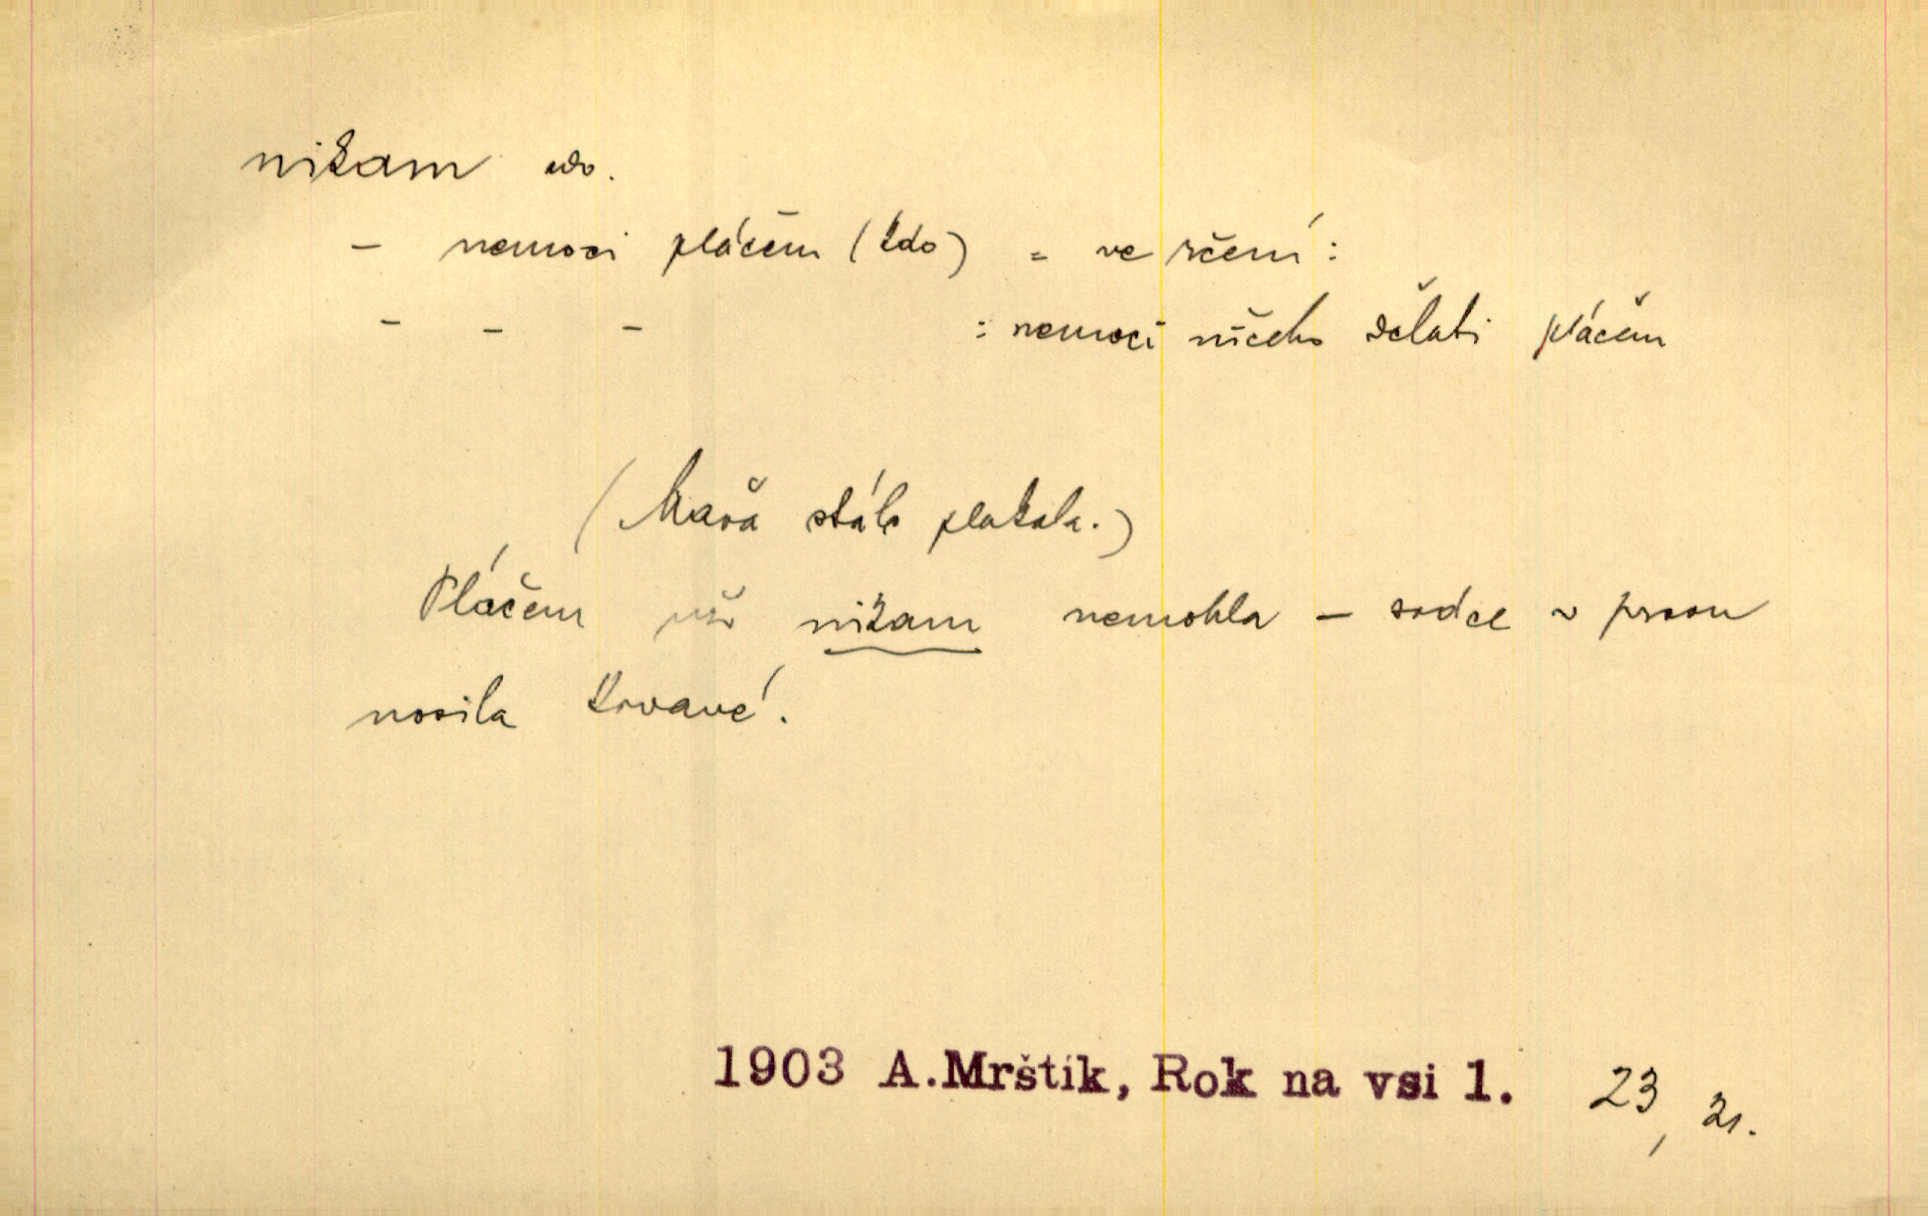 nikam adv.
– nemoci pláčem (kdo) = ve rčení:
– – – : nemoci ničeho dělati pláčem
(Mařa stále plakala.)
Pláčem už nikam nemohla – srdce v prsou
nosila krvavé.
1903 A.Mrštík, Rok na vsi 1. 23, 21.